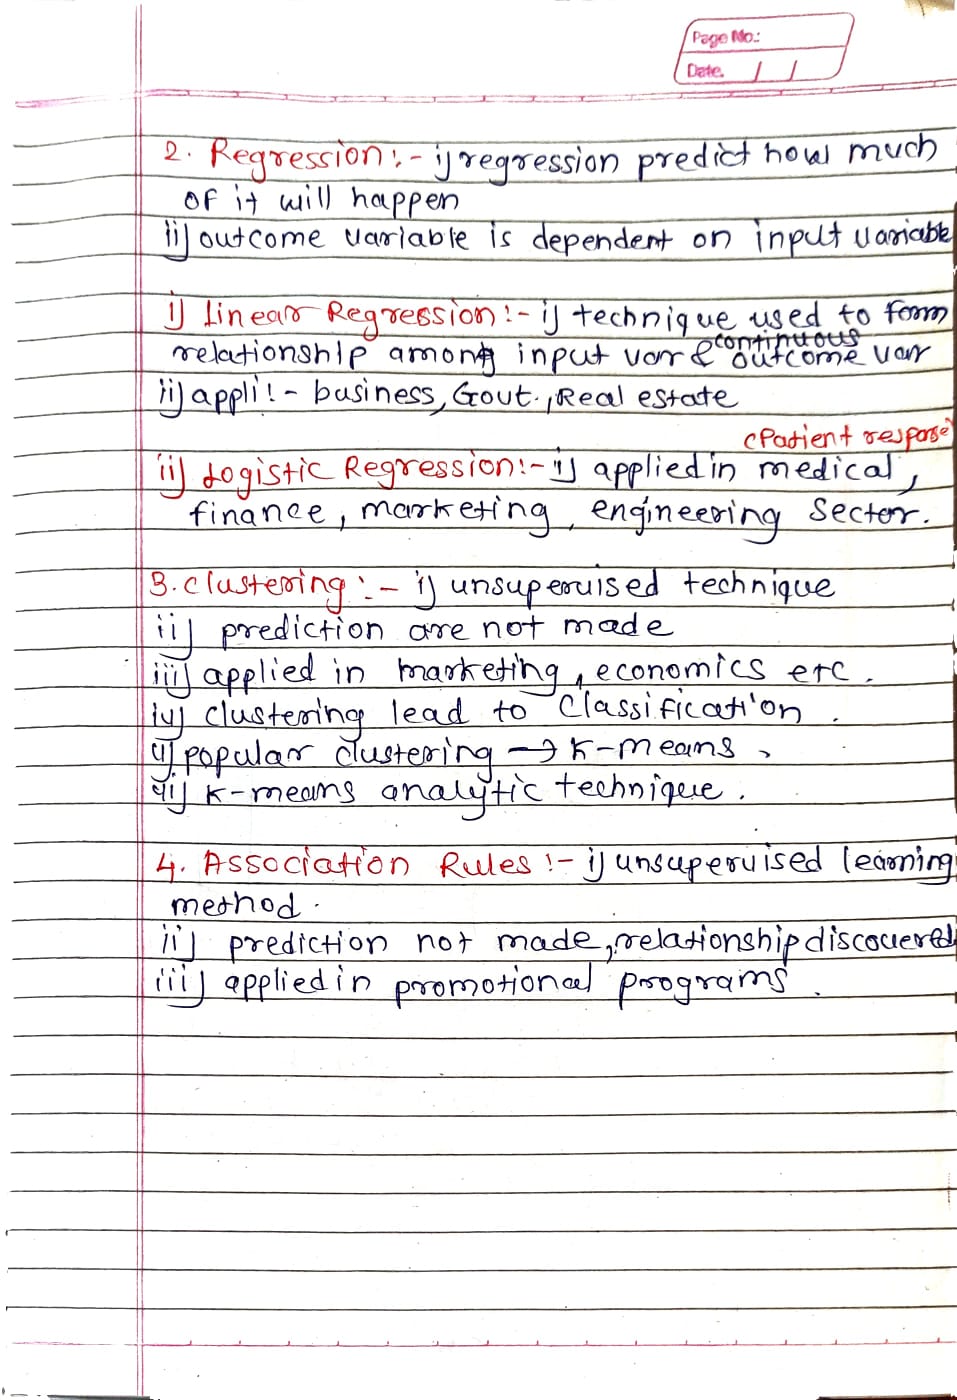 Page No.:
Date. / /
2. Regression :- i) regression predict how much
of it will happen
ii) outcome variable is dependent on input variable
i) Linear Regression :- i) technique used to form
continuous
relationship among input var & outcome var
ii) appli :- business, Govt., Real estate
(Patient response
ii) Logistic Regression :- i) applied in medical,
finance, marketing, engineering Sector.
3. Clustering :- i) unsupervised technique
ii) prediction are not made
iii) applied in marketing, economics etc.
iv) clustering lead to Classification.
v) popular clustering → K-means,
vi) K-means analytic technique.
4. Association Rules :- i) unsupervised learning
method.
ii) prediction not made, relationship discovered
iii) applied in promotional programs.